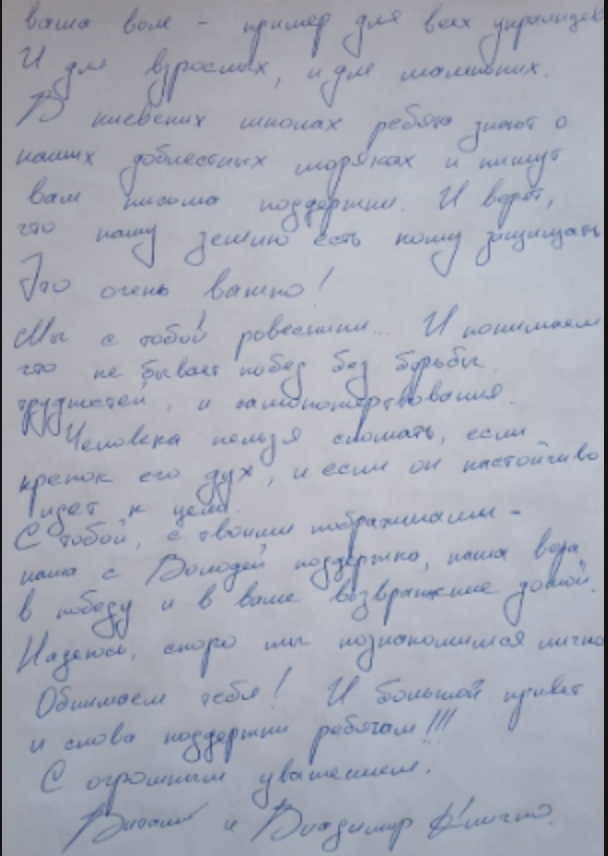 ваша воля - пример для всех украинцев
И для взрослых, и для маленьких.
В киевских школах ребята знают о
наших доблестных моряках и пишут
вам письма поддержки. И верят,
что нашу землю есть кому защищать
Это очень важно!
Мы с тобой ровесники... И понимаем
что не бывает побед без борьбы
трудностей, и самопожертвования.
Человека нельзя сломать, если
крепок его дух, и если он настойчиво
идет к цели.
С тобой, с твоими побратимами -
наша с Володей поддержка, наша вера
в победу и в ваше возвращение домой.
Надеюсь, скоро мы познакомимся лично
Обнимаем тебя! И большой привет
и слова поддержки ребятам!!!
С огромным уважением.
Виталий и Владимир Кличко.